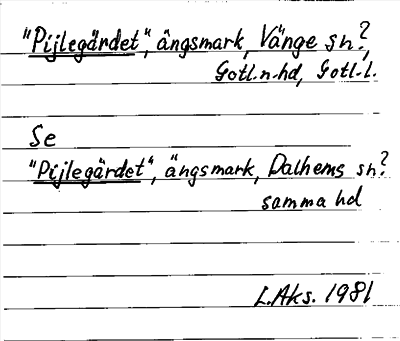 "Pijlegärdet", ängsmark, Vänge sn?,
Gotl.n.hd, Gotl.l.
Se
"Pijlegärdet", ängsmark, Dalhems sn?
samma hd
L.Aks. 1981